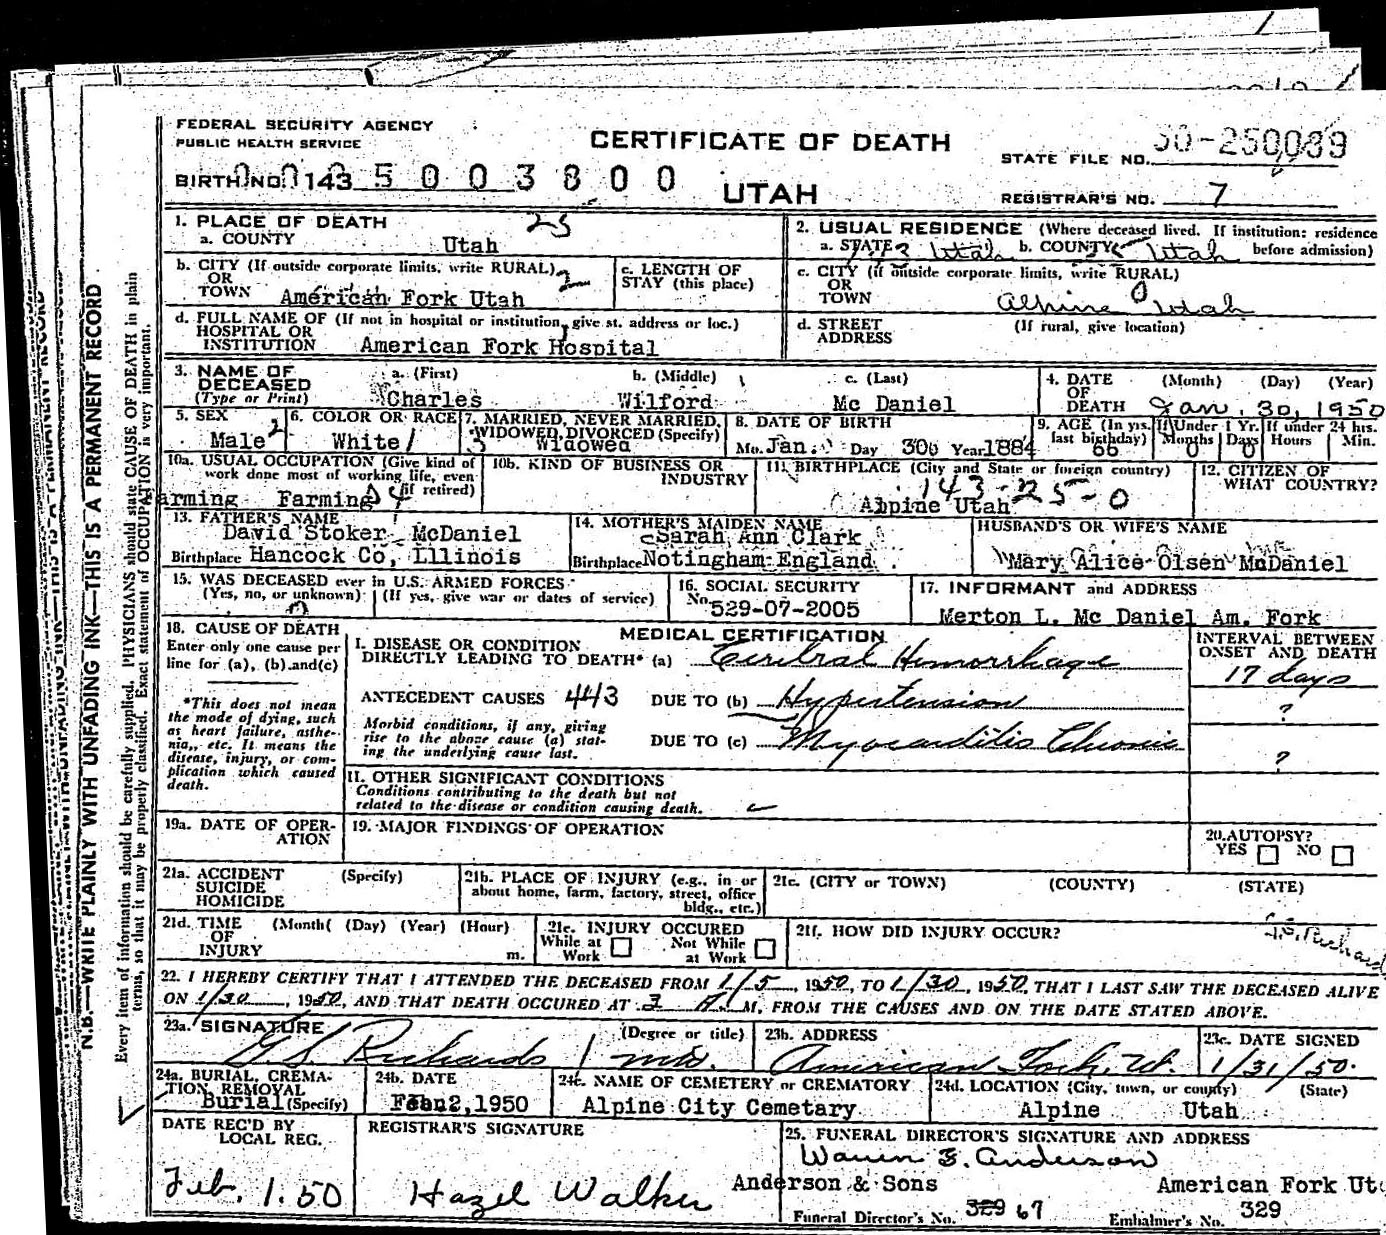 FEDERAL SECURITY AGENCY
PUBLIC HEALTH SERVICE
CERTIFICATE OF DEATH
STATE FILE NO. 50-250039
BIRTH NO. 143 5 0 0 3 8 0 0
UTAH
REGISTRAR'S NO. 7
1. PLACE OF DEATH 25
a. COUNTY Utah
2. USUAL RESIDENCE (Where deceased lived. If institution: residence before admission)
a. STATE Utah b. COUNTY Utah
b. CITY (If outside corporate limits, write RURAL) 2
OR TOWN American Fork Utah
c. LENGTH OF STAY (this place)
c. CITY (if outside corporate limits, write RURAL)
OR TOWN Alpine Utah
d. FULL NAME OF (If not in hospital or institution, give st. address or loc.)
HOSPITAL OR INSTITUTION American Fork Hospital
d. STREET ADDRESS (If rural, give location)
3. NAME OF DECEASED (Type or Print)
a. (First) b. (Middle) c. (Last)
Charles Wilford Mc Daniel
4. DATE OF DEATH (Month) (Day) (Year)
Jan. 30, 1950
5. SEX Male 2
6. COLOR OR RACE White 1
7. MARRIED, NEVER MARRIED, WIDOWED, DIVORCED (Specify) 3 Widowed
8. DATE OF BIRTH
Mo. Jan. Day 30 Year 1884
9. AGE (In yrs. last birthday) 66
If Under 1 Yr. Months 0 Days 0
If under 24 hrs. Hours Min.
10a. USUAL OCCUPATION (Give kind of work done most of working life, even if retired)
arming Farming
10b. KIND OF BUSINESS OR INDUSTRY
11. BIRTHPLACE (City and State or foreign country)
143-25-0
Alpine Utah
12. CITIZEN OF WHAT COUNTRY?
13. FATHER'S NAME
David Stoker McDaniel
Birthplace Hancock Co, Illinois
14. MOTHER'S MAIDEN NAME
Sarah Ann Clark
Birthplace Notingham England
HUSBAND'S OR WIFE'S NAME
Mary Alice Olsen McDaniel
15. WAS DECEASED ever in U.S. ARMED FORCES
(Yes, no, or unknown) (If yes, give war or dates of service)
16. SOCIAL SECURITY
No. 529-07-2005
17. INFORMANT and ADDRESS
Merton L. Mc Daniel Am. Fork
18. CAUSE OF DEATH
Enter only one cause per line for (a), (b) and (c)
*This does not mean the mode of dying, such as heart failure, asthenia, etc. It means the disease, injury, or complication which caused death.
MEDICAL CERTIFICATION
INTERVAL BETWEEN ONSET AND DEATH
I. DISEASE OR CONDITION
DIRECTLY LEADING TO DEATH* (a) Ceribral Hemorrhage
17 days
ANTECEDENT CAUSES 443 DUE TO (b) Hypertension
?
Morbid conditions, if any, giving rise to the above cause (a) stating the underlying cause last.
DUE TO (c) Myocarditis Chronic
?
II. OTHER SIGNIFICANT CONDITIONS
Conditions contributing to the death but not related to the disease or condition causing death.
19a. DATE OF OPERATION
19. MAJOR FINDINGS OF OPERATION
20. AUTOPSY?
YES NO
21a. ACCIDENT SUICIDE HOMICIDE (Specify)
21b. PLACE OF INJURY (e.g., in or about home, farm, factory, street, office bldg., etc.)
21c. (CITY or TOWN) (COUNTY) (STATE)
21d. TIME OF INJURY (Month( (Day) (Year) (Hour) m.
21e. INJURY OCCURED
While at Work Not While at Work
21f. HOW DID INJURY OCCUR?
22. I HEREBY CERTIFY THAT I ATTENDED THE DECEASED FROM 1/5, 1950, TO 1/30, 1950, THAT I LAST SAW THE DECEASED ALIVE
ON 1/30, 1950, AND THAT DEATH OCCURED AT 3 A. M. FROM THE CAUSES AND ON THE DATE STATED ABOVE.
23a. SIGNATURE (Degree or title)
G S Richards MD.
23b. ADDRESS
American Fork, Ut.
23c. DATE SIGNED
1/31/50.
24a. BURIAL, CREMATION, REMOVAL (Specify)
Burial
24b. DATE
Feb 2, 1950
24c. NAME OF CEMETERY or CREMATORY
Alpine City Cemetary
24d. LOCATION (City, town, or county) (State)
Alpine Utah
DATE REC'D BY LOCAL REG.
Feb. 1. 50
REGISTRAR'S SIGNATURE
Hazel Walker
25. FUNERAL DIRECTOR'S SIGNATURE AND ADDRESS
Warren B. Anderson
Anderson & Sons American Fork Ut
Funeral Director's No. 329 67 Embalmer's No. 329
N.B.—WRITE PLAINLY WITH UNFADING INK—THIS IS A PERMANENT RECORD
Every item of information should be carefully supplied. PHYSICIANS should state CAUSE OF DEATH in plain
terms, so that it may be properly classified. Exact statement of OCCUPATION is very important.